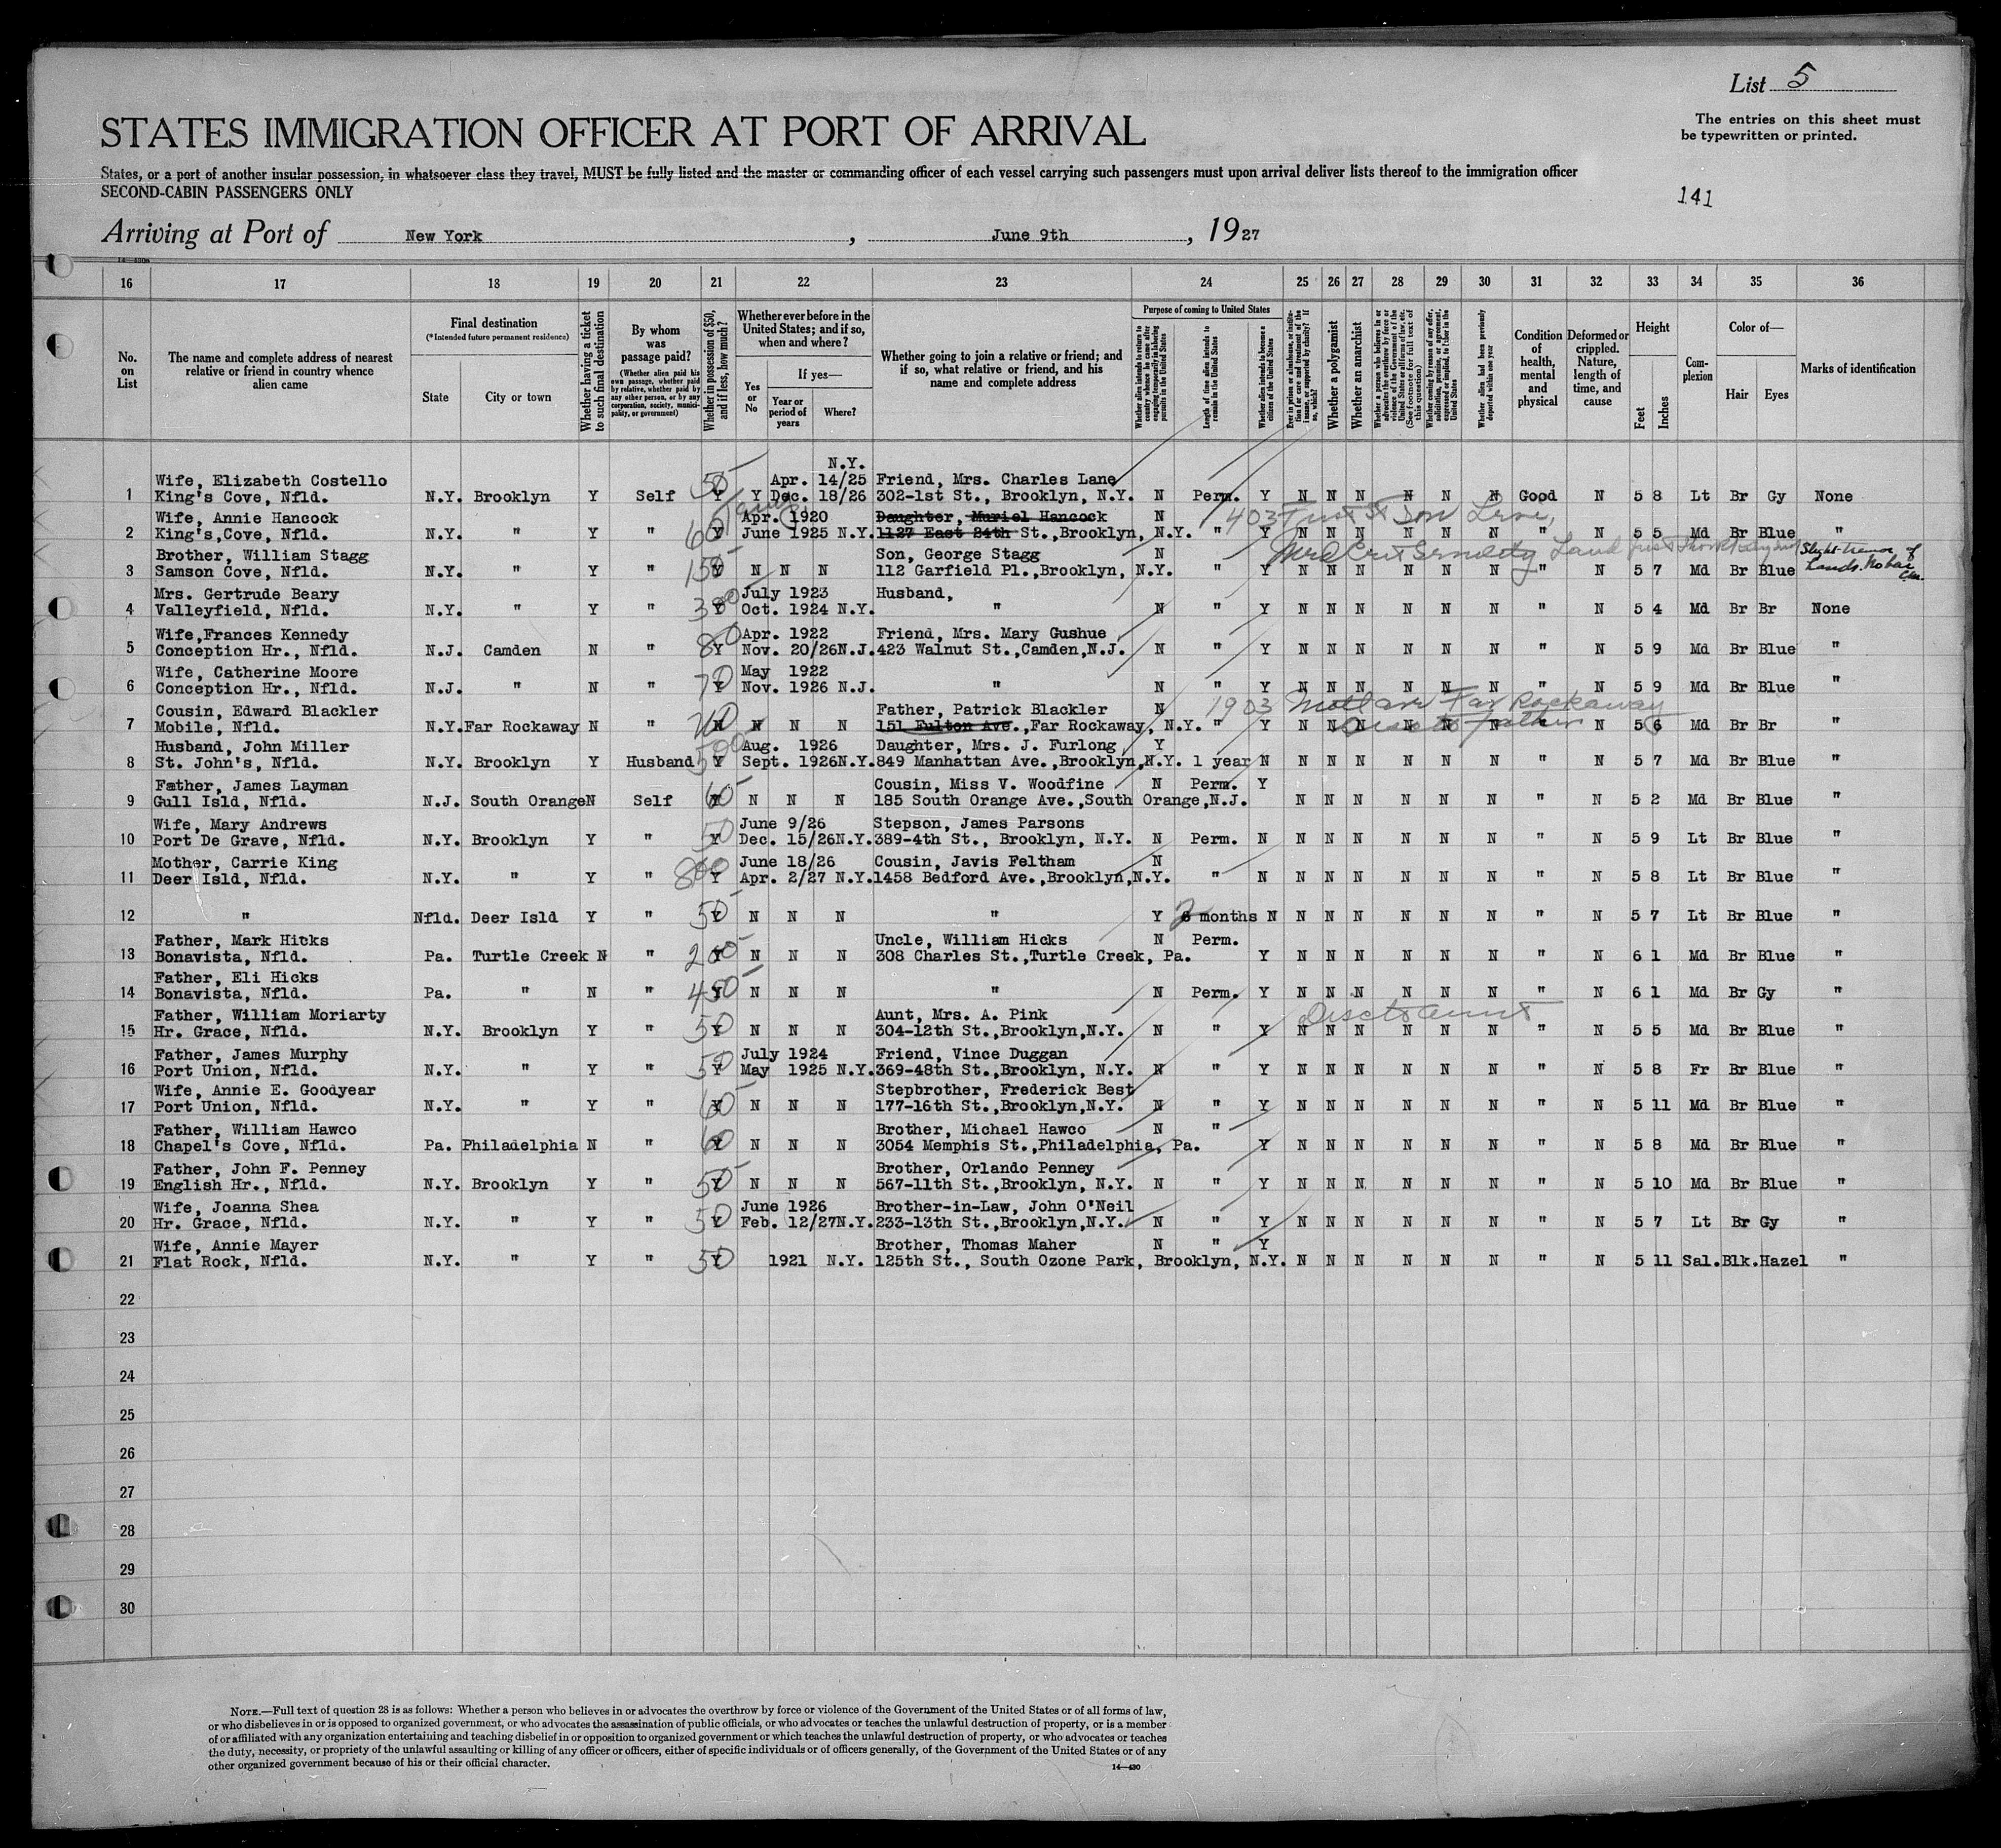 List 5
STATES IMMIGRATION OFFICER AT PORT OF ARRIVAL
The entries on this sheet must
be typewritten or printed.
States, or a port of another insular possession, in whatsoever class they travel, MUST be fully listed and the master or commanding officer of each vessel carrying such passengers must upon arrival deliver lists thereof to the immigration officer
SECOND-CABIN PASSENGERS ONLY
141
Arriving at Port of New York, June 9th, 1927
16 17 18 19 20 21 22 23 24 25 26 27 28 29 30 31 32 33 34 35 36
No. on List
The name and complete address of nearest relative or friend in country whence alien came
Final destination
(*Intended future permanent residence)
State
City or town
Whether having a ticket to such final destination
By whom was passage paid?
(Whether alien paid his own passage, whether paid by relative, whether paid by any other person, or by any corporation, society, municipality, or government)
Whether in possession of $50, and if less, how much?
Whether ever before in the United States; and if so, when and where?
Yes or No
If yes—
Year or period of years
Where?
Whether going to join a relative or friend; and if so, what relative or friend, and his name and complete address
Purpose of coming to United States
Whether alien intends to return to country whence he came after engaging temporarily in laboring pursuits in the United States
Length of time alien intends to remain in the United States
Whether alien intends to become a citizen of the United States
Whether a polygamist
Whether an anarchist
Whether alien had been previously deported within one year
Condition of health, mental and physical
Deformed or crippled. Nature, length of time, and cause
Height
Feet
Inches
Complexion
Color of—
Hair
Eyes
Marks of identification
N.Y.
Wife, Elizabeth Costello Apr. 14/25 Friend, Mrs. Charles Lane
1 King's Cove, Nfld. N.Y. Brooklyn Y Self 50 Y Y Dec. 18/26 302-1st St., Brooklyn, N.Y. N Perm. Y N N N N N N Good N 5 8 Lt Br Gy None
Wife, Annie Hancock Apr. 1920 Daughter, Muriel Hancock N 403 First St Son
2 King's,Cove, Nfld. N.Y. " Y " 60 Y June 1925 N.Y. 1127 East 24th St.,Brooklyn, N.Y. " Y N N N N N N " N 5 5 Md Br Blue "
Brother, William Stagg Son, George Stagg N Slight tremor of
3 Samson Cove, Nfld. N.Y. " Y " 150 Y N N N 112 Garfield Pl.,Brooklyn, N.Y. " Y N N N N N N " N 5 7 Md Br Blue
Mrs. Gertrude Beary July 1923 Husband,
4 Valleyfield, Nfld. N.Y. " Y " Y Oct. 1924 N.Y. " N " Y N N N N N N " N 5 4 Md Br Br None
Wife,Frances Kennedy Apr. 1922 Friend, Mrs. Mary Gushue
5 Conception Hr., Nfld. N.J. Camden N " 80 Y Nov. 20/26N.J. 423 Walnut St.,Camden,N.J. N " Y N N N N N N " N 5 9 Md Br Blue "
Wife, Catherine Moore May 1922
6 Conception Hr., Nfld. N.J. " N " 70 Y Nov. 1926 N.J. " N " Y N N N N N N " N 5 9 Md Br Blue "
Cousin, Edward Blackler Father, Patrick Blackler N 1903 Far Rockaway
7 Mobile, Nfld. N.Y. Far Rockaway N " N N N N 151 Fulton Ave.,Far Rockaway, N.Y. " Y N N N N N N Disc to father " N 5 6 Md Br Br "
Husband, John Miller Aug. 1926 Daughter, Mrs. J. Furlong Y
8 St. John's, Nfld. N.Y. Brooklyn Y Husband 500 Y Sept. 1926N.Y. 849 Manhattan Ave.,Brooklyn,N.Y. 1 year N N N N N N N " N 5 7 Md Br Blue "
Father, James Layman Cousin, Miss V. Woodfine N Perm. Y
9 Gull Isld, Nfld. N.J. South Orange N Self 60 Y N N N 185 South Orange Ave.,South Orange,N.J. N N N N N N " N 5 2 Md Br Blue "
Wife, Mary Andrews June 9/26 Stepson, James Parsons
10 Port De Grave, Nfld. N.Y. Brooklyn Y " 50 Y Dec. 15/26N.Y. 389-4th St., Brooklyn, N.Y. N Perm. N N N N N N N " N 5 9 Lt Br Blue "
Mother, Carrie King June 18/26 Cousin, Javis Feltham N
11 Deer Isld, Nfld. N.Y. " Y " 800 Y Apr. 2/27 N.Y. 1458 Bedford Ave.,Brooklyn,N.Y. " N N N N N N N " N 5 8 Lt Br Blue "
12 " Nfld. Deer Isld Y " 50 Y N N N " Y 2 6 months N N N N N N N " N 5 7 Lt Br Blue "
Father, Mark Hicks Uncle, William Hicks N Perm.
13 Bonavista, Nfld. Pa. Turtle Creek N " 200 Y N N N 308 Charles St.,Turtle Creek, Pa. Y N N N N N N " N 6 1 Md Br Blue "
Father, Eli Hicks
14 Bonavista, Nfld. Pa. " N " 450 Y N N N " N Perm. Y N N N N N N " N 6 1 Md Br Gy "
Father, William Moriarty Aunt, Mrs. A. Pink Disc to aunt
15 Hr. Grace, Nfld. N.Y. Brooklyn Y " 50 Y N N N 304-12th St.,Brooklyn,N.Y. N " Y N N N N N N " N 5 5 Md Br Blue "
Father, James Murphy July 1924 Friend, Vince Duggan
16 Port Union, Nfld. N.Y. " Y " 50 Y May 1925 N.Y. 369-48th St.,Brooklyn, N.Y. N " Y N N N N N N " N 5 8 Fr Br Blue "
Wife, Annie E. Goodyear Stepbrother, Frederick Best
17 Port Union, Nfld. N.Y. " Y " 60 Y N N N 177-16th St.,Brooklyn,N.Y. N " Y N N N N N N " N 5 11 Md Br Blue "
Father, William Hawco Brother, Michael Hawco N "
18 Chapel's Cove, Nfld. Pa. Philadelphia N " 60 Y N N N 3054 Memphis St.,Philadelphia, Pa. Y N N N N N N " N 5 8 Md Br Blue "
Father, John F. Penney Brother, Orlando Penney
19 English Hr., Nfld. N.Y. Brooklyn Y " 50 Y N N N 567-11th St.,Brooklyn, N.Y. N " Y N N N N N N " N 5 10 Md Br Blue "
Wife, Joanna Shea June 1926 Brother-in-Law, John O'Neil
20 Hr. Grace, Nfld. N.Y. " Y " 50 Y Feb. 12/27N.Y. 233-13th St.,Brooklyn,N.Y. N " Y N N N N N N " N 5 7 Lt Br Gy "
Wife, Annie Mayer Brother, Thomas Maher N " Y
21 Flat Rock, Nfld. N.Y. " Y " 50 Y 1921 N.Y. 125th St., South Ozone Park, Brooklyn, N.Y. N N N N N N " N 5 11 Sal. Blk. Hazel "
22
23
24
25
26
27
28
29
30
NOTE.—Full text of question 28 is as follows: Whether a person who believes in or advocates the overthrow by force or violence of the Government of the United States or of all forms of law,
or who disbelieves in or is opposed to organized government, or who advocates the assassination of public officials, or who advocates or teaches the unlawful destruction of property, or is a member
of or affiliated with any organization entertaining and teaching disbelief in or opposition to organized government or which teaches the unlawful destruction of property, or who advocates or teaches
the duty, necessity, or propriety of the unlawful assaulting or killing of any officer or officers, either of specific individuals or of officers generally, of the Government of the United States or of any
other organized government because of his or their official character.
14—430